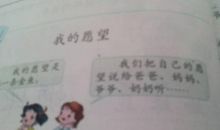 我的愿望
我的愿望是
我们把自己的愿
望说给爸爸、妈妈、
爷爷、奶奶听……